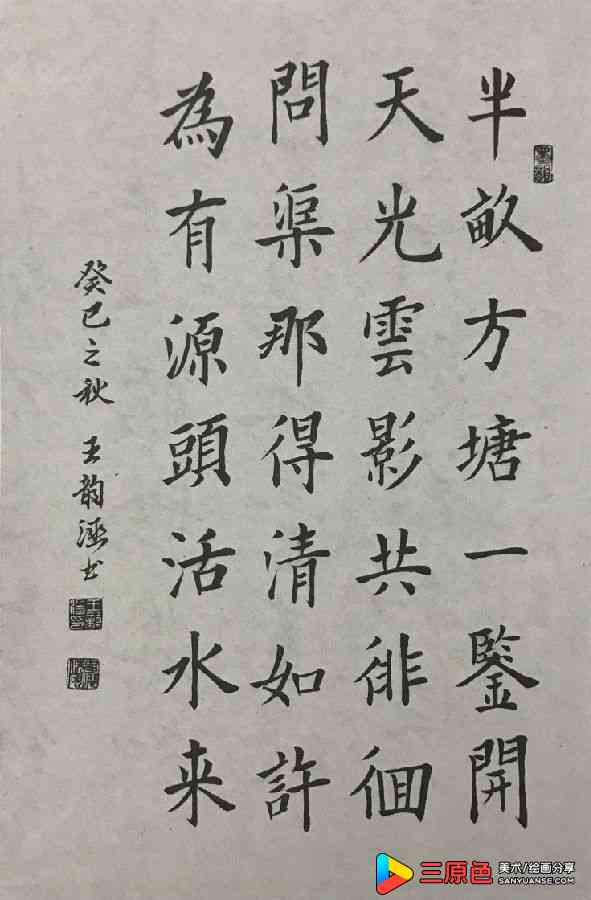 半畝方塘一鑒開
天光雲影共徘徊
問渠那得清如許
為有源頭活水来
癸巳之秋 王韵涵书
三原色 美术/绘画分享
SANYUANSE.COM